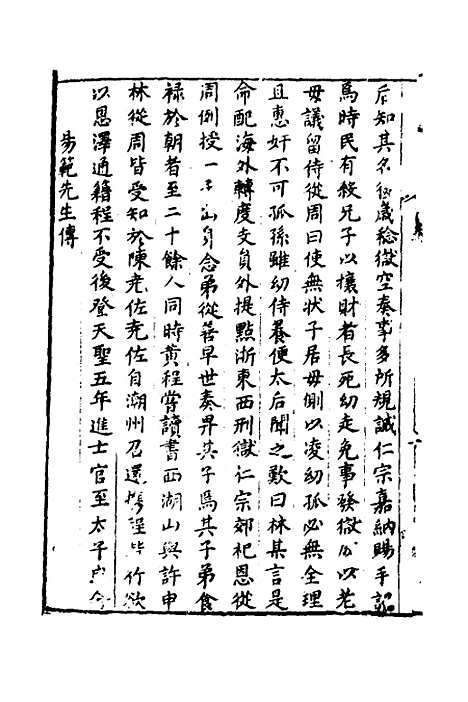 斥知其名歲稔獄空奏事多所規誠仁宗嘉納賜手詔
爲時民有殺兄子以攘財者長死幼走免事發獄以老
毋議留侍從周曰使無状子居毋側以凌幼孤必無全理
且惠奸不可孤孫雖幼侍養便太后聞之歎曰林某言是
命配海外轉度支員外提點浙東西刑獄仁宗郊祀恩從
周例授一子出身念弟從善早世奏畀其子爲其子弟食
祿於朝者至二十餘人同時黄程嘗讀書西湖山與許申
林從周皆受知於陳尭佐尭佐自潮州召還攜程與行欲
以恩澤通籍程不受後登天聖五年進士官至太子
易範先生傳